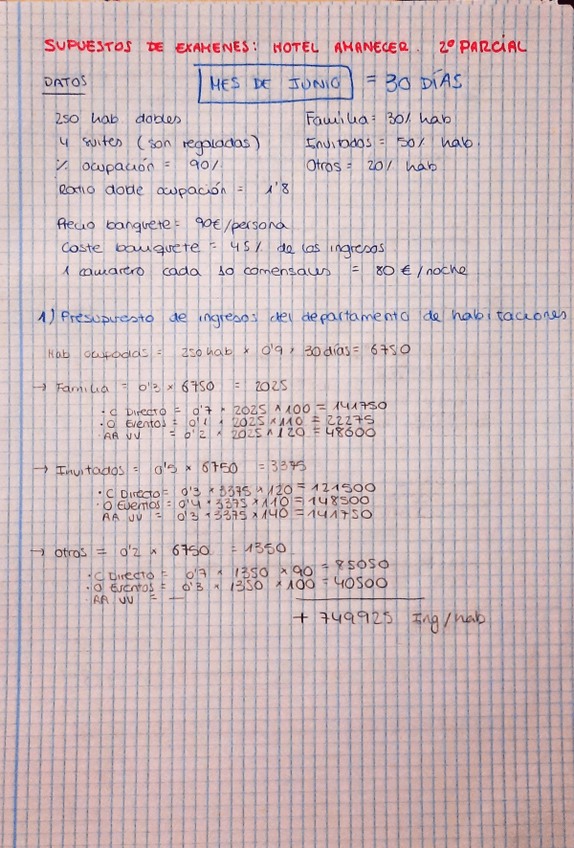 SUPUESTOS DE EXAMENES: HOTEL AMANECER. 2º PARCIAL
DATOS
MES DE JUNIO = 30 DÍAS
250 hab dobles
4 suites (son regaladas)
% ocupación = 90%
Ratio doble ocupación = 1'8
Familia = 30% hab
Invitados = 50% hab.
Otros = 20% hab
Precio banquete = 90€/persona
Coste banquete = 45% de los ingresos
1 camarero cada 10 comensales = 80 €/noche
1) Presupuesto de ingresos del departamento de habitaciones
Hab ocupadas = 250 hab x 0'9 x 30 días = 6750
→ Familia = 0'3 x 6750 = 2025
· C Directo = 0'7 x 2025 x 100 = 141750
· O Eventos = 0'1 x 2025 x 110 = 22275
AA VV = 0'2 x 2025 x 120 = 48600
→ Invitados = 0'5 x 6750 = 3375
· C Directo = 0'3 x 3375 x 120 = 121500
· O Eventos = 0'4 x 3375 x 110 = 148500
AA VV = 0'3 x 3375 x 140 = 141750
→ Otros = 0'2 x 6750 = 1350
· C Directo = 0'7 x 1350 x 90 = 85050
· O Eventos = 0'3 x 1350 x 100 = 40500
· AA VV = —
+ 749925 Ing/hab